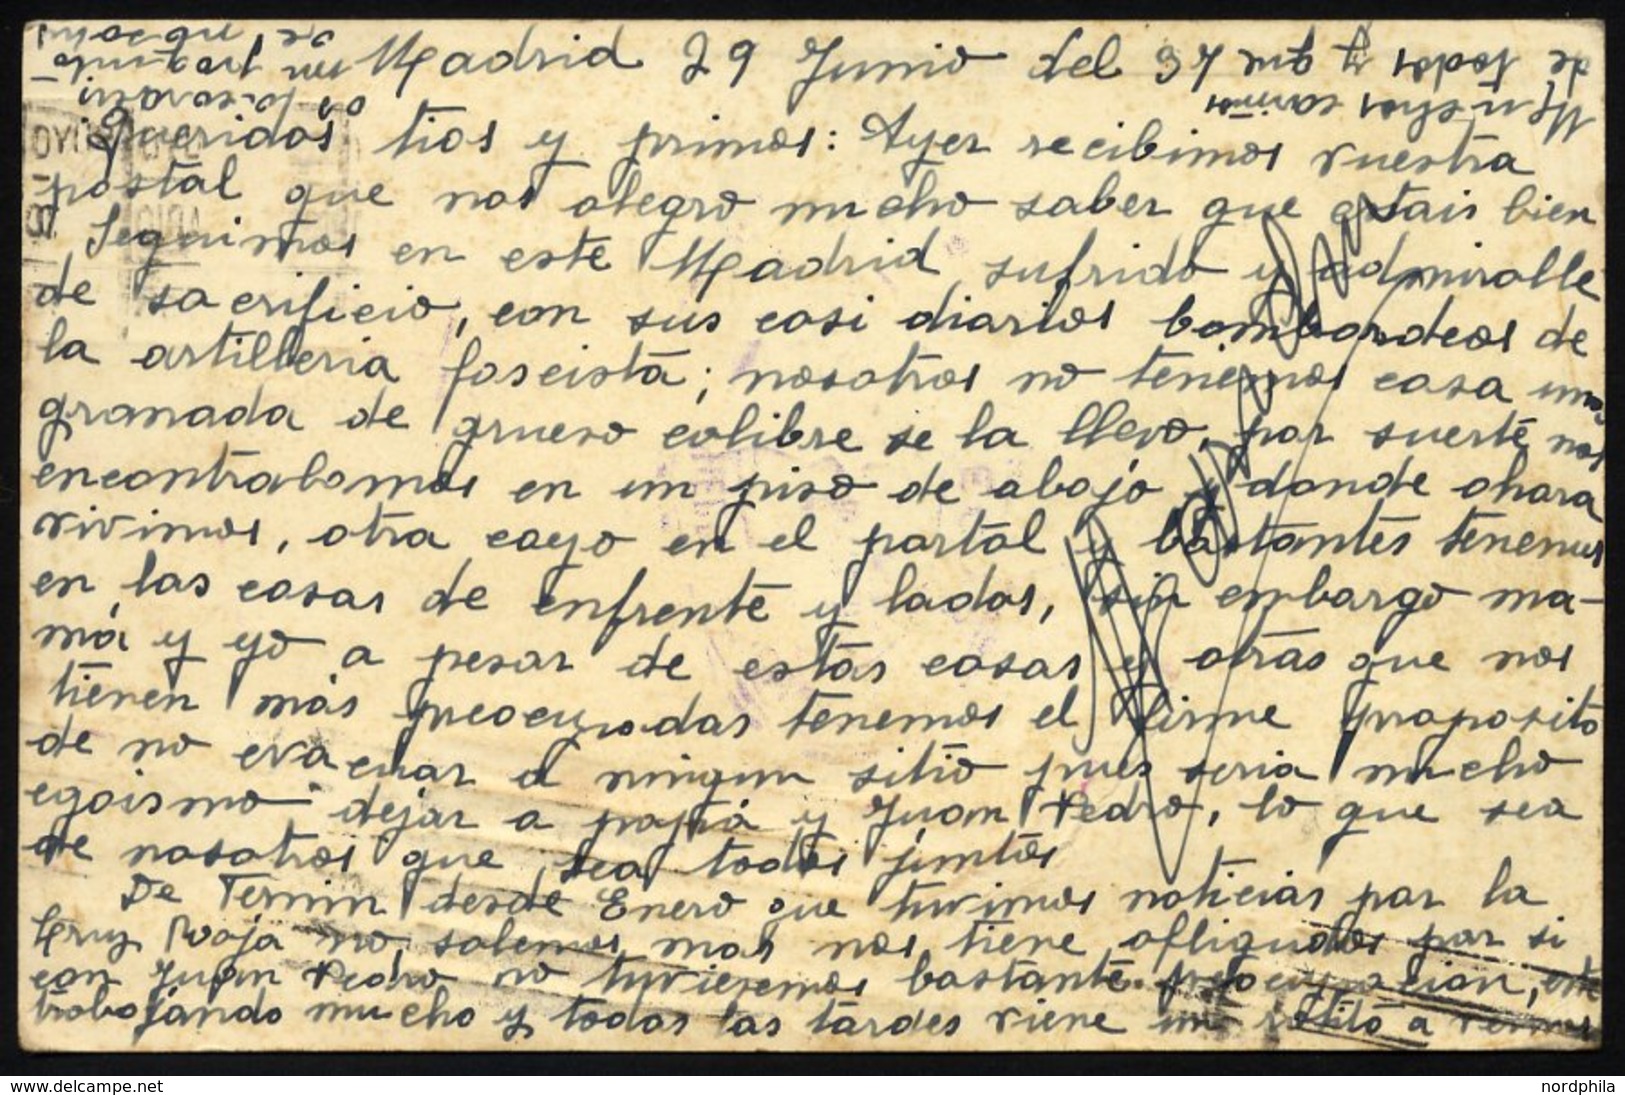 Madrid 29 Junio del 37
Queridos tios y primos: Ayer recibimos vuestra
postal que nos alegro mucho saber que estais bien
Seguimos en este Madrid sufrido y admirable
de sacrificio, con sus casi diarios bombardeos de
la artilleria fascista; nosotros no tenemos casa una
granada de grueso calibre se la llevo, por suerte nos
encontrabamos en un piso de abajo y donde ahora
vivimos, otra cayo en el portal y bastantes tenemos
en las casas de enfrente y lados, sin embargo ma-
má y yo a pesar de estas cosas y otras que nos
tienen más preocupadas tenemos el firme proposito
de no evacuar a ningun sitio pues seria mucho
egoismo dejar a papá y Juan Pedro, lo que sea
de nosotros que sea todos juntos
De Fermin desde Enero que tuvimos noticias por la
Cruz Roja no sabemos mas nos tiene afligidos por si
con Juan Pedro no tuvieremos bastante preocupacion, este
trabajando mucho y todas las tardes viene un ratito a vernos
Muchos cariños
de todos y
delcampe.net
nordphila